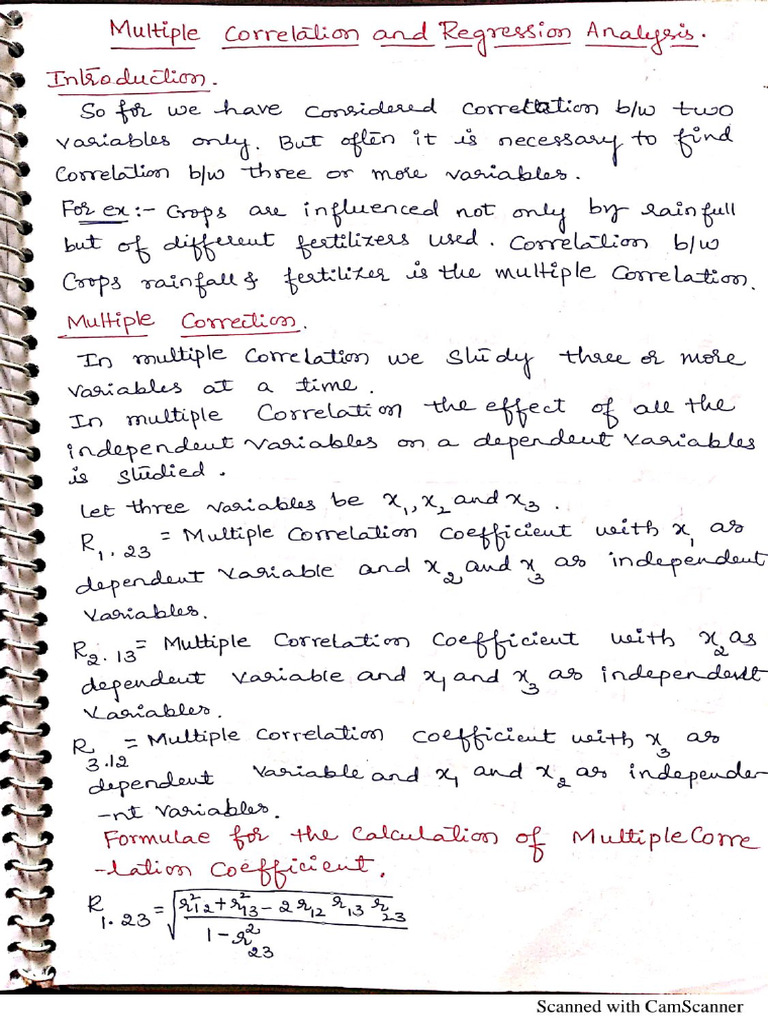 Multiple Correlation and Regression Analysis.
Introduction.
So for we have considered correltation b/w two
variables only. But often it is necessary to find
Correlation b/w three or more variables.
For ex :- Crops are influenced not only by rainfull
but of different fertilizers used. Correlation b/w
Crops rainfall & fertilizer is the multiple Correlation.
Multiple Correction.
In multiple Correlation we study three or more
variables at a time.
In multiple Correlation the effect of all the
independent variables on a dependent variables
is studied.
Let three variables be x₁, x₂ and x₃.
R₁.₂₃ = Multiple Correlation Coefficient with x₁ as
dependent variable and x₂ and x₃ as independent
variables.
R₂.₁₃ = Multiple Correlation Coefficient with x₂ as
dependent variable and x₁ and x₃ as independent
variables.
R₃.₁₂ = Multiple Correlation Coefficient with x₃ as
dependent variable and x₁ and x₂ as independe
-nt variables.
Formulae for the Calculation of Multiple Corre
-lation Coefficient.
R₁.₂₃ = √((r²₁₂ + r²₁₃ - 2 r₁₂ r₁₃ r₂₃) / (1 - r²₂₃))
Scanned with CamScanner